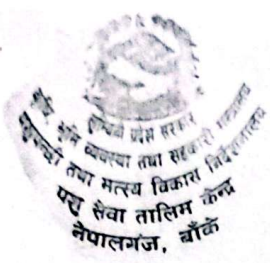 लुम्बिनी प्रदेश सरकार
कृषि, भूमि व्यवस्था तथा सहकारी मन्त्रालय
पशुपन्छी तथा मत्स्य विकास निर्देशनालय
पशु सेवा तालिम केन्द्र
नेपालगंज, बाँके